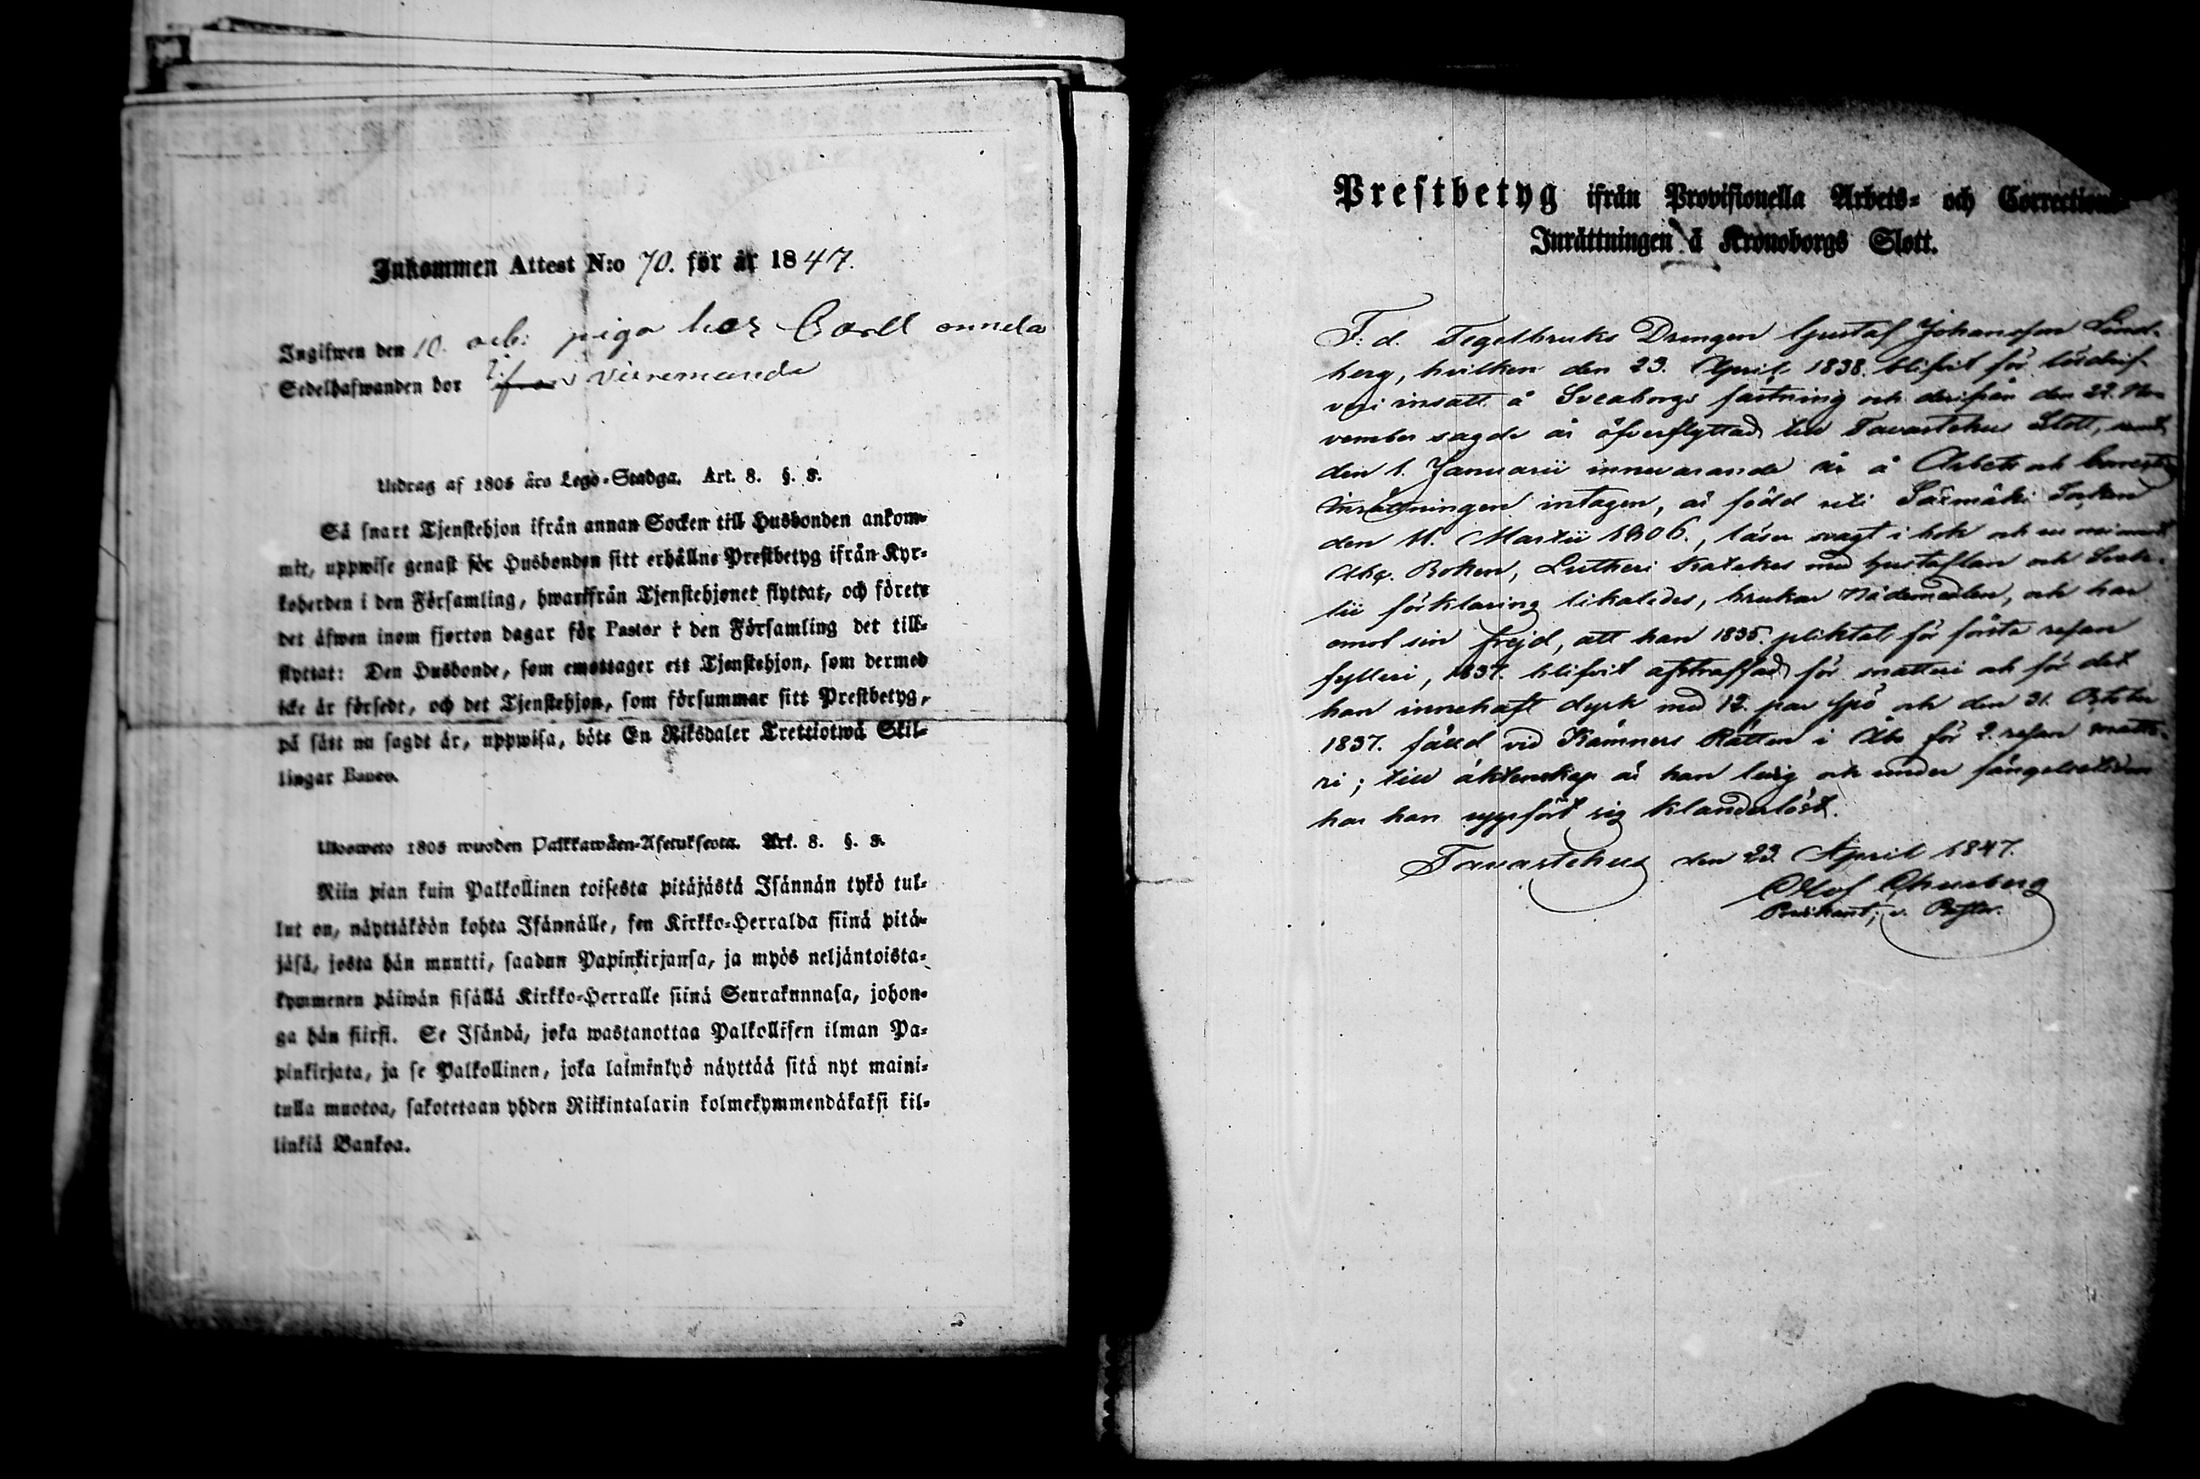 Inkommen Attest N:o 70. för år 1847.
Ingifwen den 10. oct: piga hos Carll
Sedelhafwanden bor i från Virremanda
Utdrag af 1805 års Lego-Stadga. Art. 8. §. 3.
Så snart Tjenstehjon ifrån annan Socken till Husbonden ankom-
mit, uppwise genast för Husbonden sitt erhållne Prestbetyg ifrån Kyr-
koherden i den Församling, hwarifrån Tjenstehjonet flyttat, och förete
det äfwen inom fjorton dagar för Pastor i den Församling det till-
flyttat: Den Husbonde, som emottager ett Tjenstehjon, som dermed
icke är försedt, och det Tjenstehjon, som försummar sitt Prestbetyg,
på sätt nu sagdt är, uppwisa, böte En Riksdaler Trettiotwå Skil-
lingar Banco.
Ulosweto 1805 wuoden Palkkawäen-Asetuksesta. Art. 8. §. 3.
Niin pian kuin Palkollinen toisesta pitäjästä Isännän tykö tul-
lut on, näyttäköön kohta Isännälle, sen Kirkko-Herralda siinä pitä-
jäsä, josta hän muutti, saadun Papinkirjansa, ja myös neljäntoista-
kymmenen päiwän sisällä Kirkko-Herralle siinä Seurakunnasa, johon-
ga hän siirsi. Se Isändä, joka wastanottaa Palkollisen ilman Pa-
pinkirjata, ja se Palkollinen, joka laiminlyö näyttää sitä nyt maini-
tulla muotoa, sakotetaan yhden Riikintalarin kolmekymmendäkaksi kil-
linkiä Bankoa.
Prestbetyg ifrån Provisionella Arbets- och Corrections-
Inrättningen å Kronoborgs Slott.
F: d. Tegelbruks Drengen Gustaf Johansson Lind-
berg, hvilken den 23. April 1838. blifvit för lösdrif-
veri insatt å Sveaborgs fästning och derifrån den 22. No-
vember sagde år öfverflyttad till Tavastehus Slott, samt
den 1. Januarii innevarande år å Arbets och Corrections
Inrättningen intagen, är född uti Säxmäki Socken
den 11. Martii 1806., läser svagt i bok och en
Abc. Boken, Lutheri Katekes med Hustaflan och
lii förklaring likaledes, brukar Nådemedlen, och har
om sin frejd, att han 1835. pliktat för första resan
fylleri, 1837. blifvit afstraffad för snatteri och för det
han innehaft dyrk med 12. par spö och den 31. October
1837. fälld vid Kämners Rätten i Åbo för 2. resan snatte-
ri; till äktenskap är han ledig och under fängelsetiden
har han uppfört sig klanderlöst.
Tavastehus den 23. April 1847.
Olof